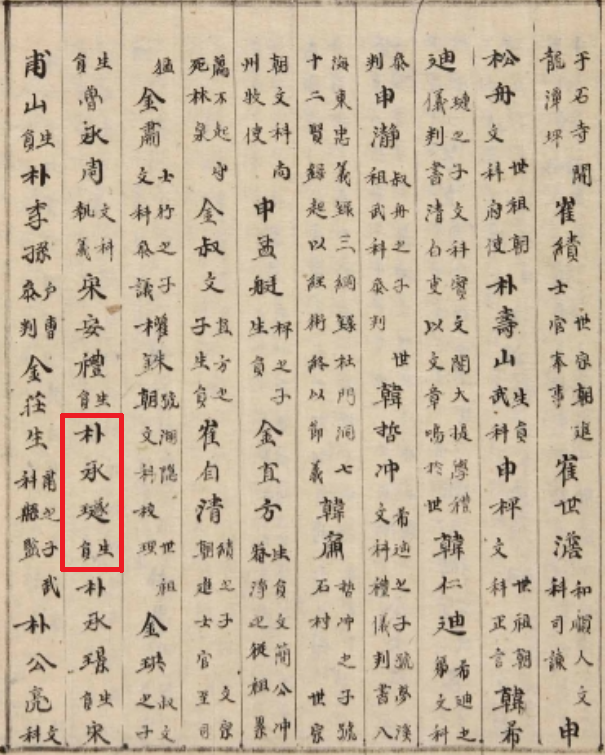 于石寺閒龍潭坪崔績世宗朝進士官奉事崔世澹和順人文科司諫申
松舟世祖朝文科府使朴壽山生員武科申枰世祖朝文科正言韓希
迪璉之子文科寶文閣大提學禮儀判書清白吏以文章鳴於世韓仁迪希迪之弟文科
參判申瀞叔舟之子世祖武科參判韓哲冲希迪之子號夢溪文科禮儀判書入
海東忠義錄三綱錄杜門洞七十二賢錄起以經術終以節義韓廉哲冲之子號石村世宗
朝文科尚州牧使申孟艇枰之子生員金直方生員文簡公冲菴淨之從祖景
薦不起守死林泉金叔文直方之子生員崔自清績之子文宗朝進士官至司
猛金肅士行之子文科參議權銖號湖隱世祖朝文科校理金珙叔文之子
生員魯永周文科執義宋安禮生員朴永璲生員朴永璟生員宋
甫山生員朴李孫戶曹參判金莊生肅之子武科縣監朴公亮文科